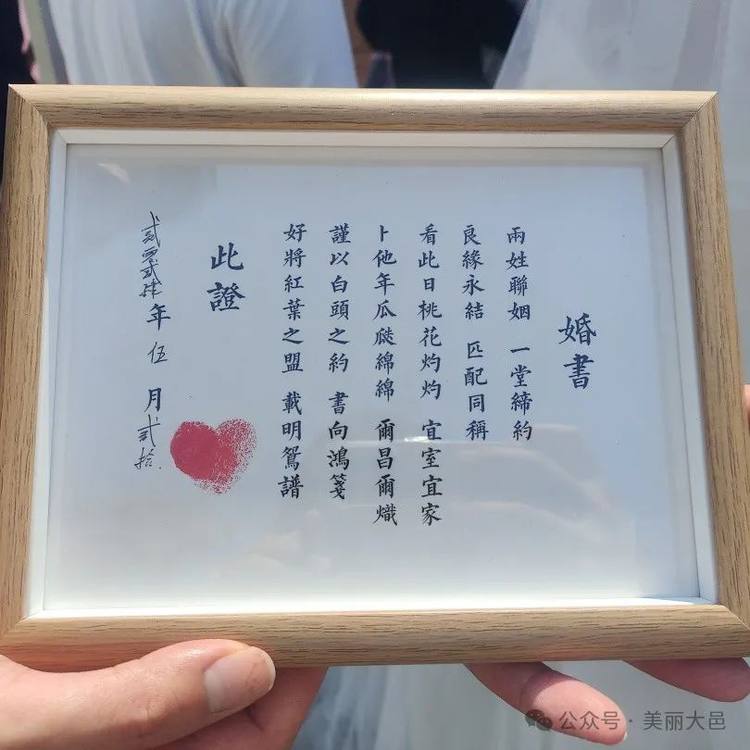 婚書
兩姓聯姻 一堂締約
良緣永結 匹配同稱
看此日桃花灼灼 宜室宜家
卜他年瓜瓞綿綿 爾昌爾熾
謹以白頭之約 書向鴻箋
好將紅葉之盟 載明鴛譜
此證
貳零貳肆年伍月貳拾
公众号·美丽大邑